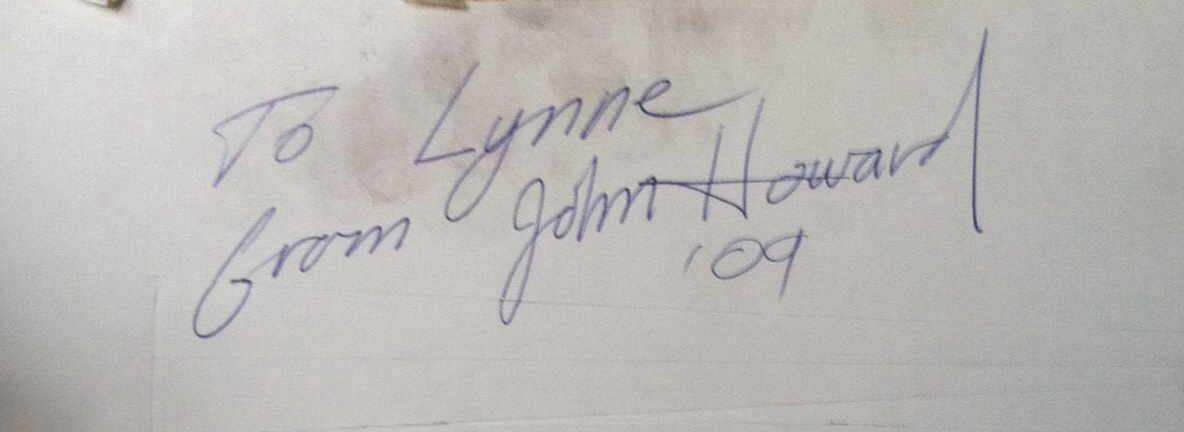 To Lynne
from John Howard
'09